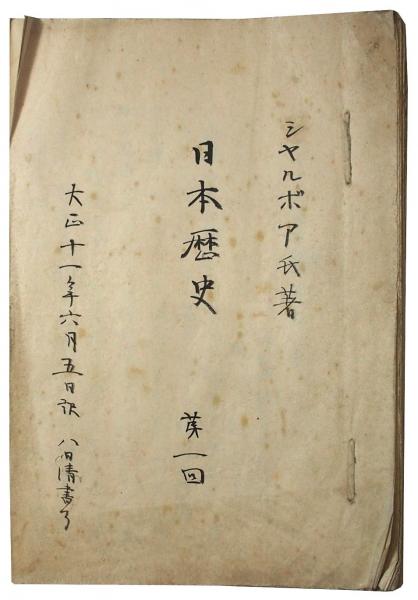 シャルボア氏著
日本歴史 第一回
大正十一年六月五日訳 八日清書了